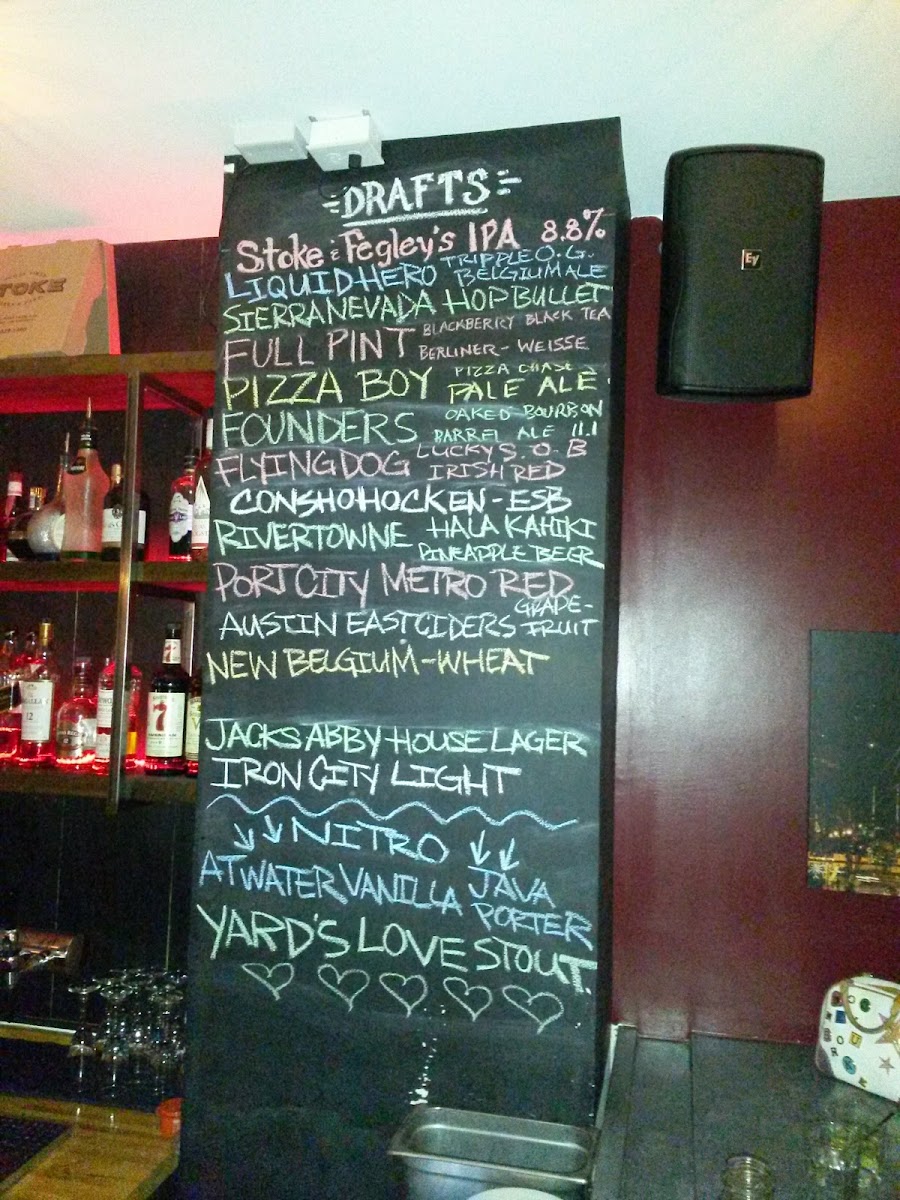 =DRAFTS=
Stoke & Fegley's IPA 8.8%
LIQUID HERO TRIPPLE O.G. BELGIUM ALE
SIERRA NEVADA HOP BULLET
FULL PINT BLACKBERRY BLACK TEA BERLINER-WEISSE
PIZZA BOY PIZZA CHASE PALE ALE
FOUNDERS OAKED BOURBON BARREL ALE 11.1
FLYING DOG LUCKY S.O.B IRISH RED
CONSHOHOCKEN-ESB
RIVERTOWNE HALA KAHIKI PINEAPPLE BEER
PORT CITY METRO RED
AUSTIN EASTCIDERS GRAPE-FRUIT
NEW BELGIUM-WHEAT
JACKS ABBY HOUSE LAGER
IRON CITY LIGHT
NITRO
ATWATER VANILLA JAVA PORTER
YARD'S LOVE STOUT.
TOKE
EV
7
12